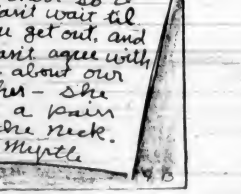 can't wait til
u get out, and
can't agree with
about our
her - she
a pain
the neck.
Myrtle